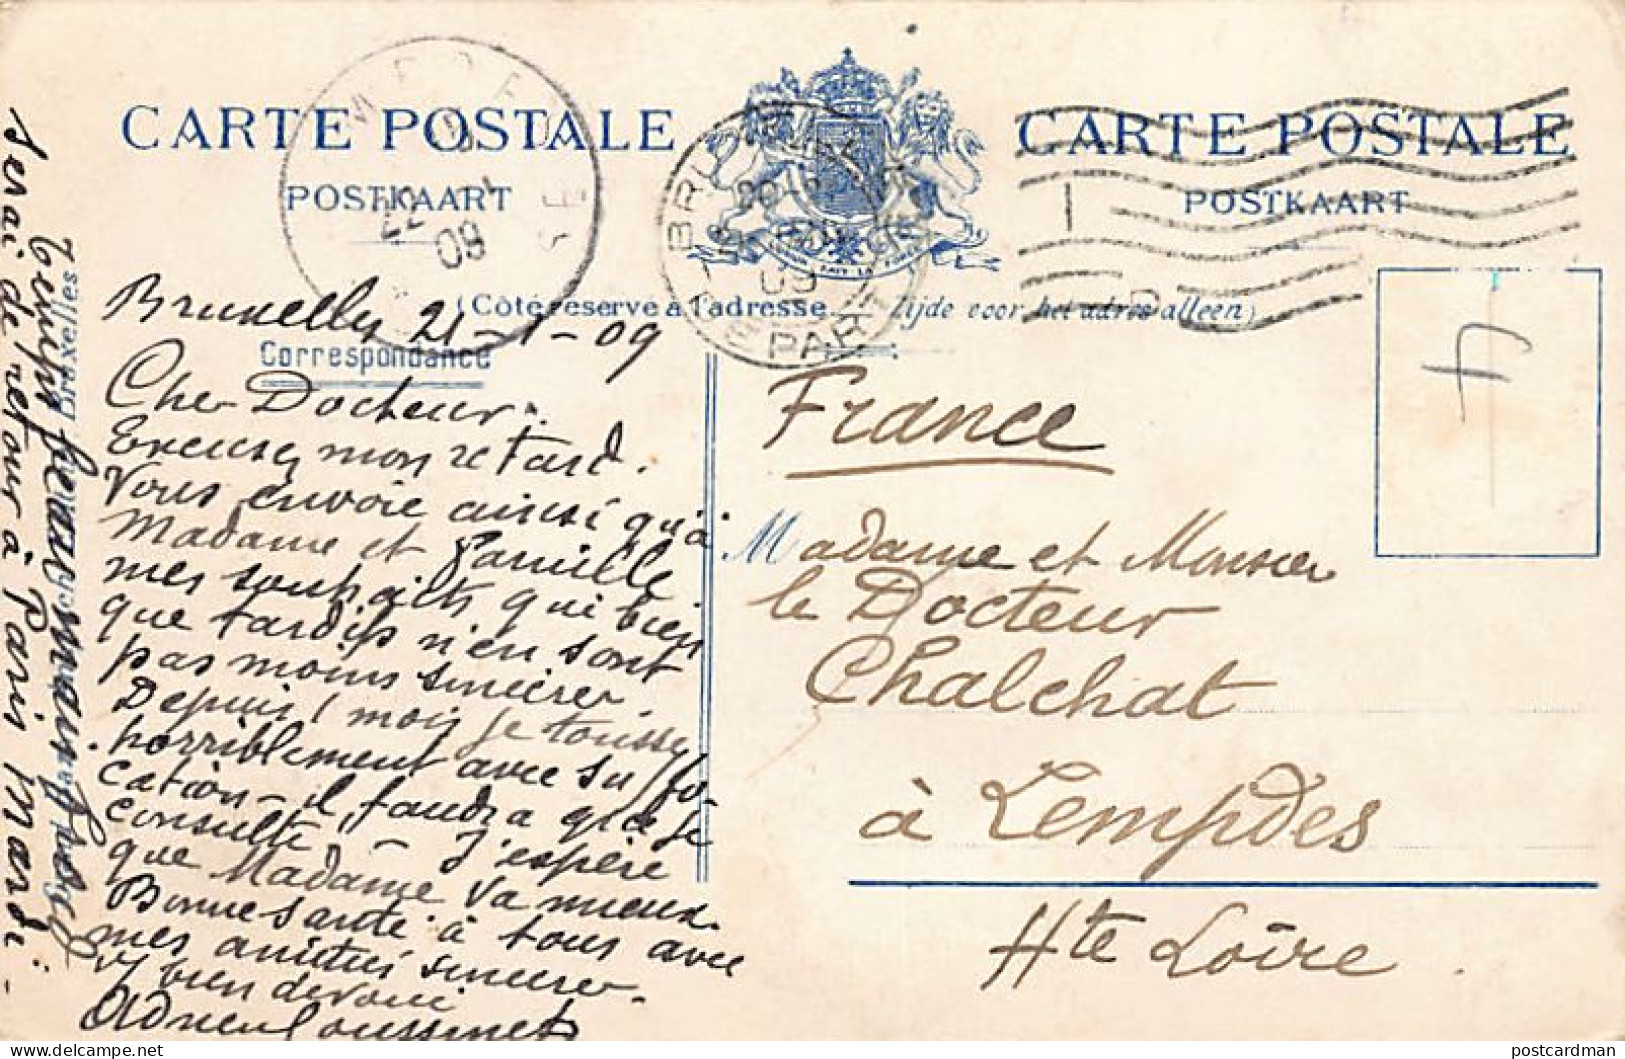 CARTE POSTALE
POSTKAART
CARTE POSTALE
POSTKAART
(Côté réservé à l'adresse
Zijde voor het adres alleen)
Correspondance
22
09
BRUXELLES
09
DEPART
Bruxelles 21-1-09
Cher Docteur.
Excusez mon retard.
Vous envoie ainsi qu'à
Madame et Famille
mes souhaits qui bien
que tardifs n'en sont
pas moins sincères.
Depuis 1 mois je tousse
horriblement avec suffo-
cation - il faudra que je
consulte - J'espère
que Madame va mieux.
Bonne santé à tous avec
mes amitiés sincères.
V/ bien dévoué
Adrien Toussinet
Serai de retour à Paris Mardi -
Bruxelles
France
Madame et Monsieur
le Docteur
Chalchat
à Lempdes
Hte Loire.
4
postcardman